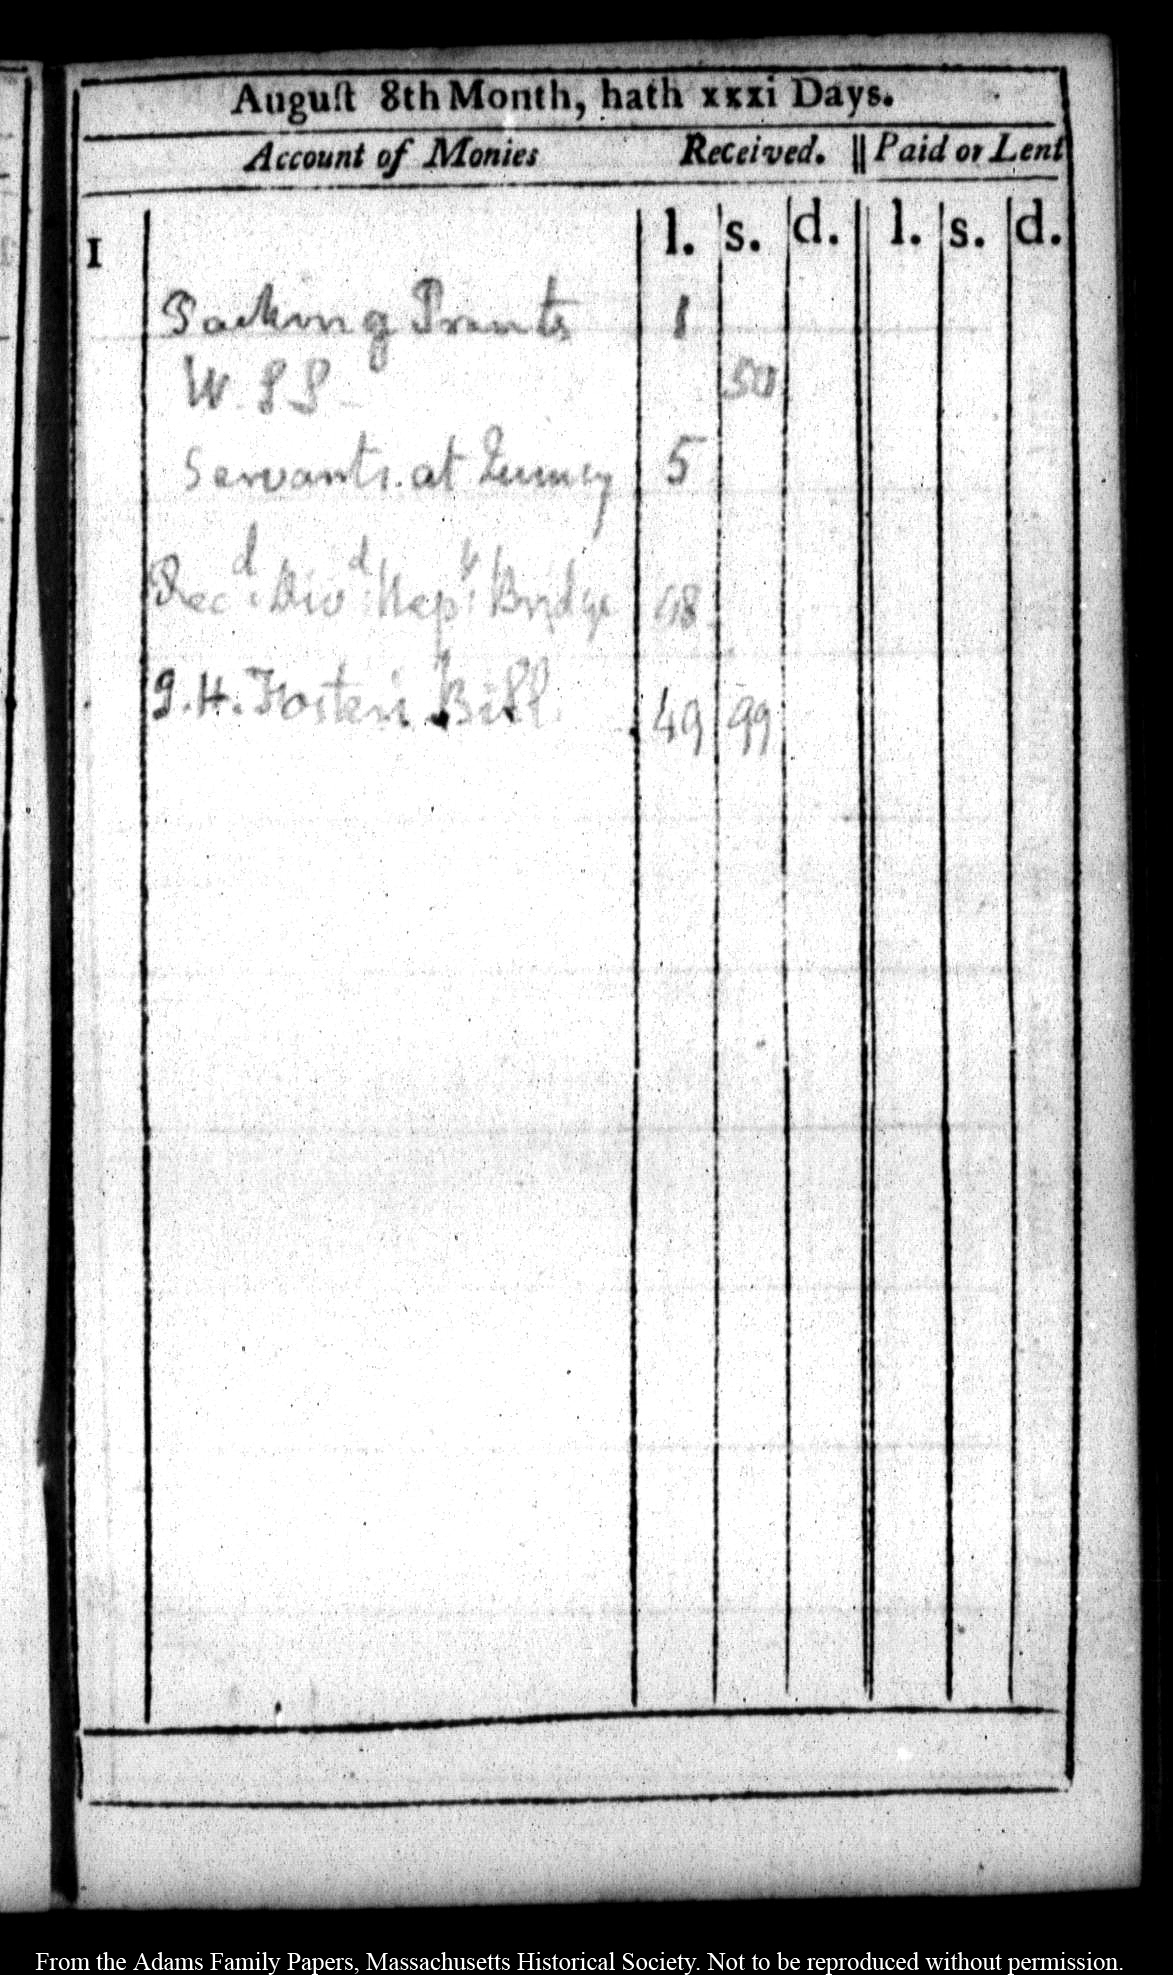 Auguſt 8th Month, hath xxxi Days.
Account of Monies Received. || Paid or Lent
1 l. s. d. l. s. d.
Packing Prints 1
W. S S 50
Servants. at Quincy 5
Recd. Divd: Nept: Bridge 48
J. H. Foster's Bill. 49 99
From the Adams Family Papers, Massachusetts Historical Society. Not to be reproduced without permission.